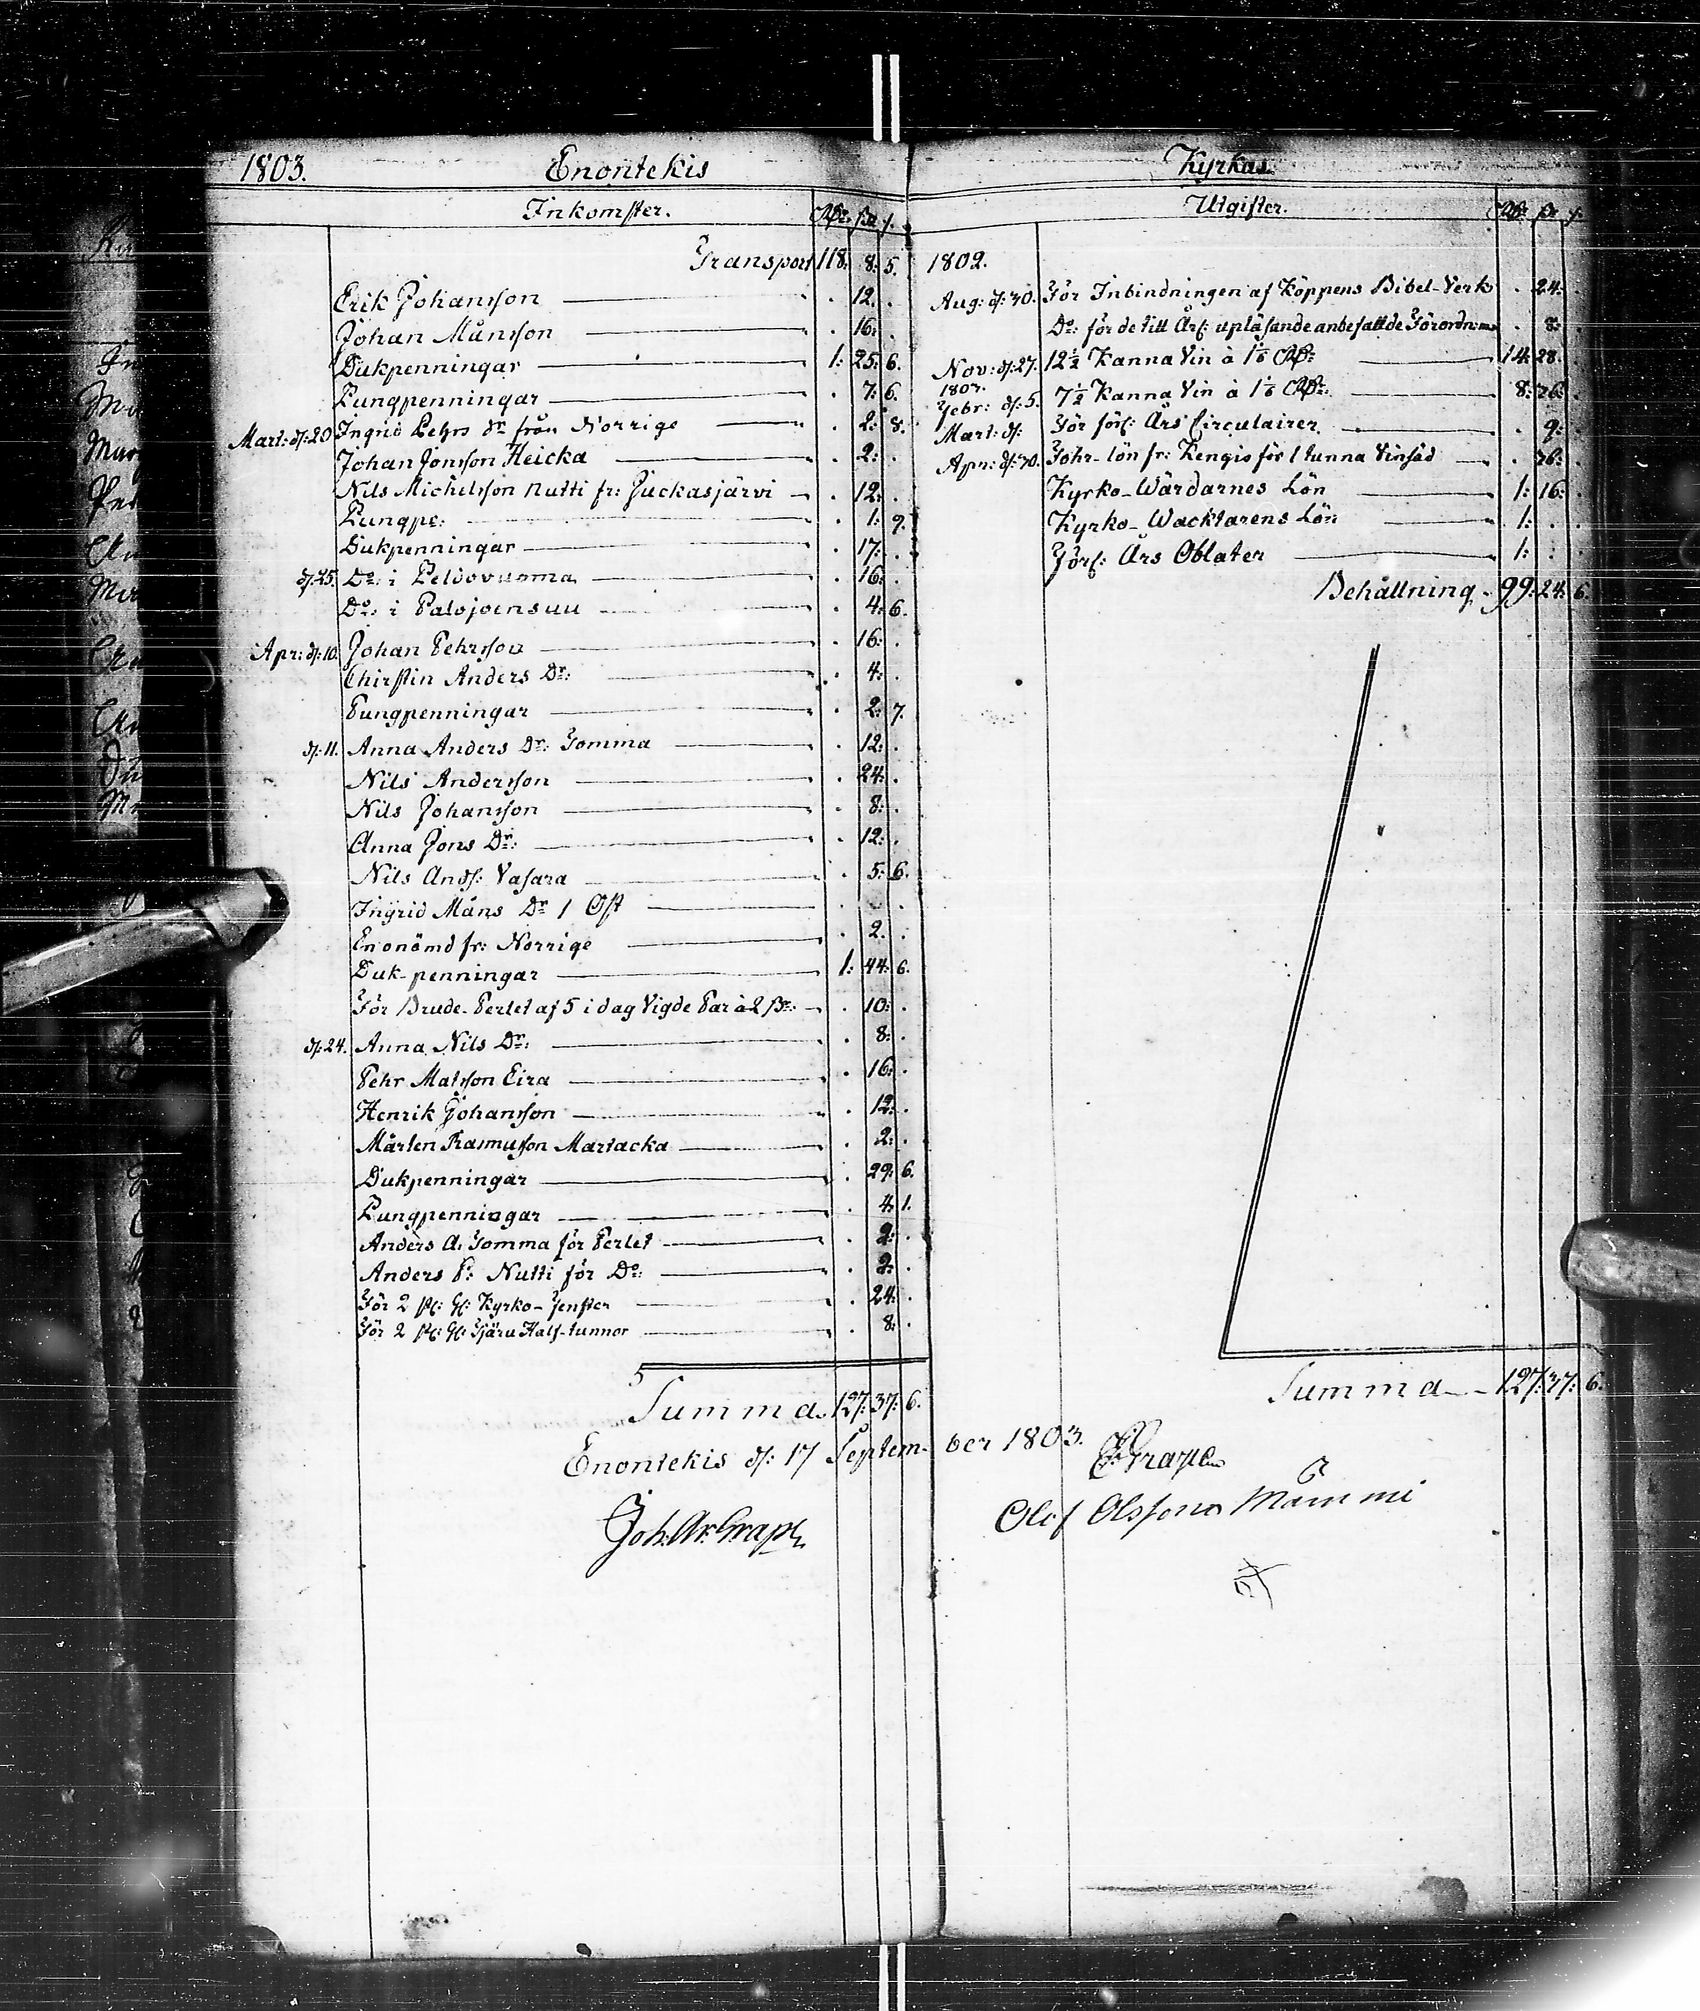 1803. Enontekis
Inkomster. Rdr. ß. r.
Transport 118: 8: 5.
Erik Johansson . 12. .
Johan Månsson . 16: .
Dukpenningar 1: 25: 6.
Pungpenningar . 7: 6.
Mart: d: 20 Ingrid Pehrs dr från Norrige . 2: 8.
Johan Jonsson Heicka . 2: .
Nils Michelsson Nutti fr: Juckasjärvi . 12: .
Pungpe: . 1: 9.
Dukpenningar . 17: .
d: 25. Do: i Peldovuoma . 16: .
Do: i Palojoensuu . 4: 6.
Apr: d: 10. Johan Pehrsson . 16: .
Chirstin Anders Dr: . 4: .
Pungpenningar . 2: 7.
d: 11. Anna Anders Dr: Somma . 12: .
Nils Andersson . 24: .
Nils Johansson . 8: .
Anna Jons Dr: . 12: .
Nils Ands: Vasara . 5: 6.
Ingrid Måns Dr 1 Ost . . .
En onömd fr: Norrige . 2. .
Duk-penningar 1: 44: 6.
För Brude-Perlet af 5 i dag Vigde Par à 2 ß: . 10: .
d: 24. Anna Nils Dr: . 8: .
Pehr Matsson Eira . 16: .
Henrik Johansson . 12: .
Mårten Rasmusson Martacka . 2: .
Dukpenningar . 29: 6.
Pungpenningar . 4. 1.
Anders A: Somma för Perlet . 2: .
Anders P: Nutti för Do: . 2: .
För 2 st: gl: Kyrko-Fenster . 24: .
För 2 st: gl: Tjäru Half-tunnor . 8: .
Summa 127: 37: 6.
Enontekis d: 17 Septem-
Joh: Ar: Grape
Kyrkas
Utgifter. Rdr ß. r.
1802.
Aug: d: 30. För Inbindningen af Köppens Bibel-Verk . 24: .
Do: för de till Års upläsande anbefallde Förordn: . 8: .
Nov: d: 27. 12½ Kanna Vin à 1⅙ Rdr: 14: 28.
1803.
Febr: d: 5. 7½ Kanna Vin à 1⅙ Rdr: 8: 36: .
Mart: d: För förl: Års Circulairer . 9: .
Apr: d: 30. Fohr-lön fr: Kengis för 1 tunna Vinsäd . 36: .
Kyrko-Wärdarnes Lön 1: 16: .
Kyrko-Wacktarens Lön 1: . .
Förl: Års Oblater 1: . .
Behållning 99: 24: 6.
Summa 127: 37: 6.
ber 1803.
Grape
Olof Olsson Mämmi